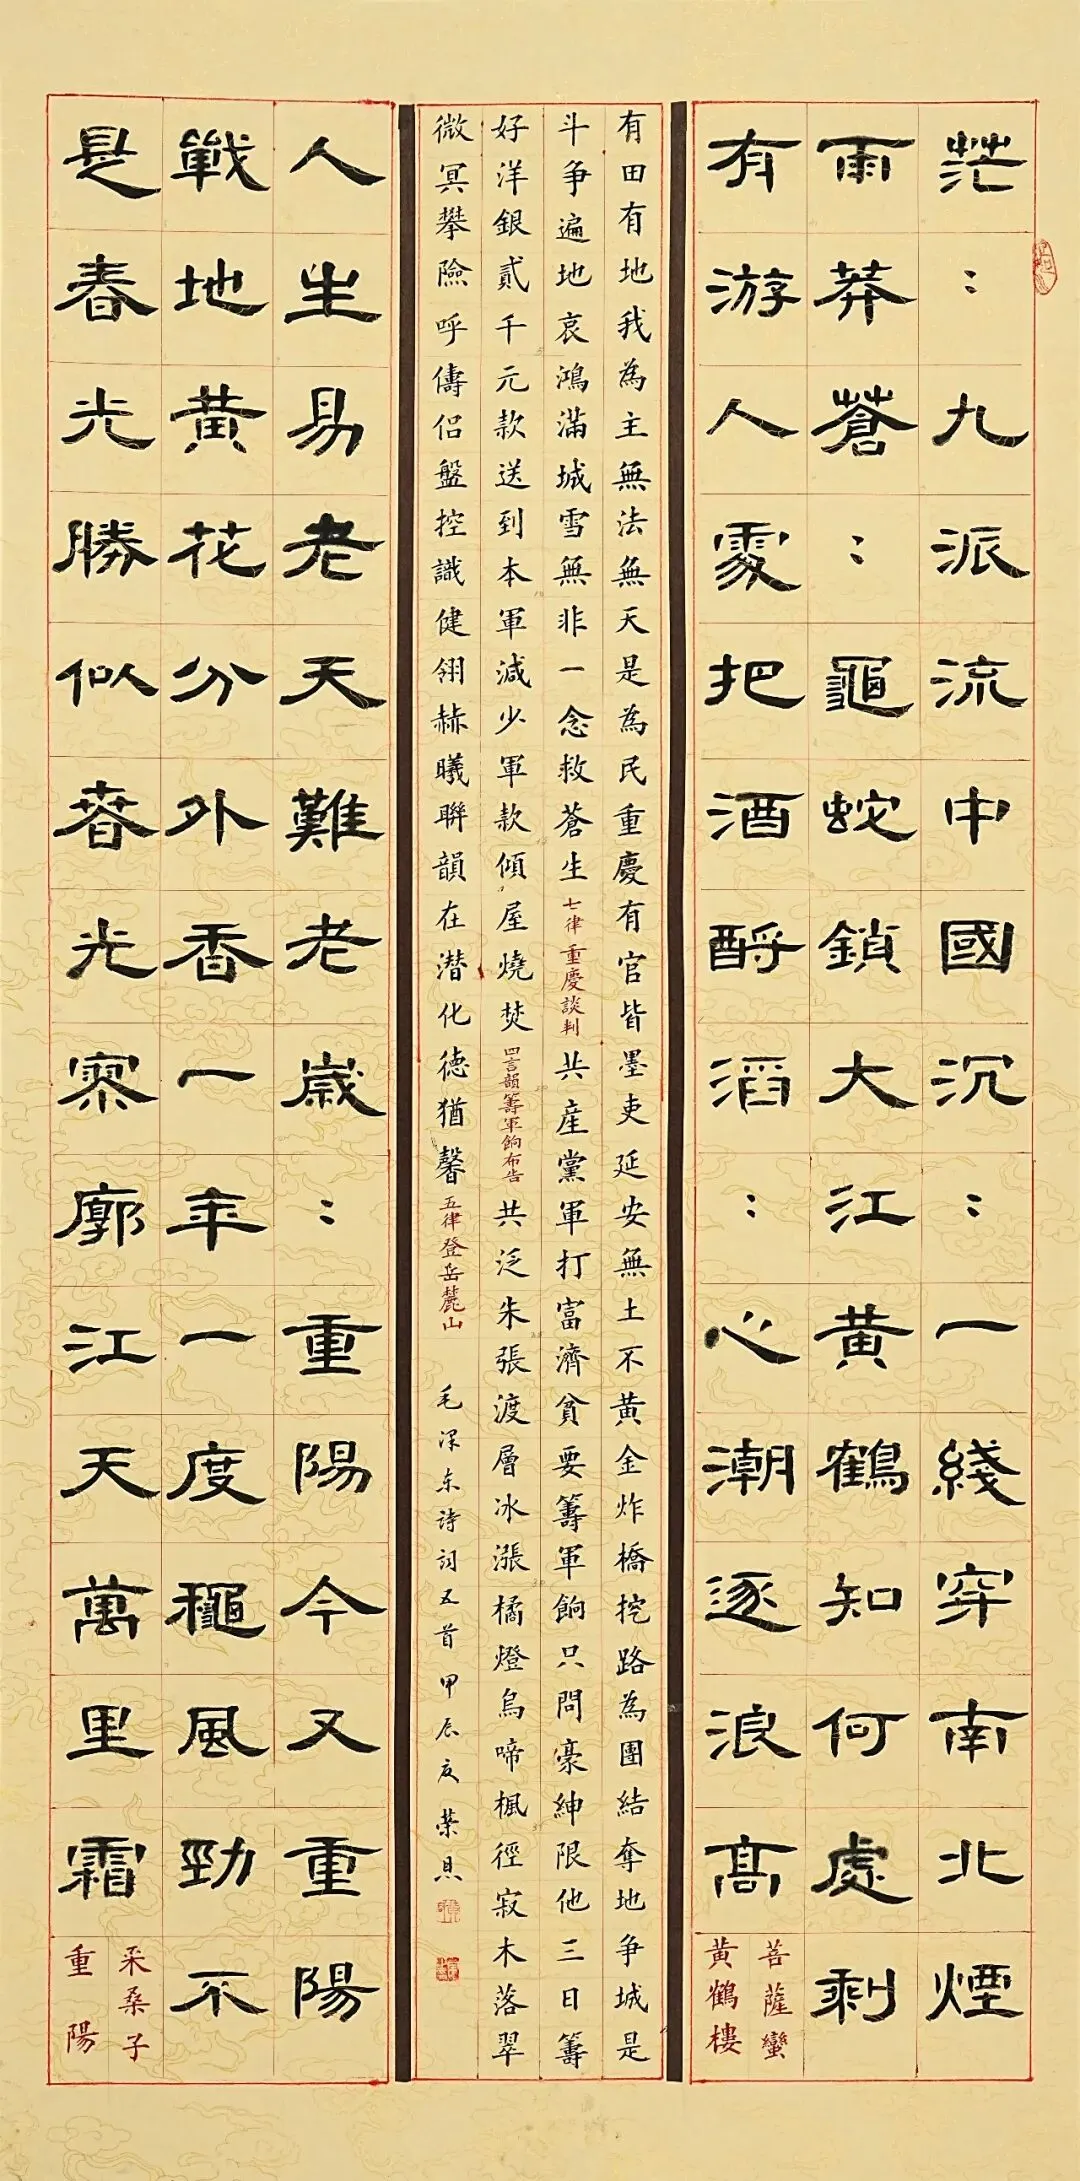 茫：九派流中國沉：一綫穿南北煙
雨莽蒼：龜蛇鎖大江黃鶴知何處剩
有游人處把酒酹滔：心潮逐浪高
菩薩蠻
黃鶴樓
有田有地我為主無法無天是為民重慶有官皆墨吏延安無土不黃金炸橋挖路為團結奪地争城是
斗争遍地哀鴻滿城雪無非一念救蒼生 七律 重慶談判 共產黨軍打富濟貧要籌軍餉只問豪紳限他三日籌
好洋銀貳千元款送到本軍減少軍款傾屋燒焚 四言韻籌軍餉布告 共泛朱張渡層冰漲橘燈烏啼楓徑寂木落翠
微冥攀險呼儔侣盤控識健翎赫曦聯韻在潜化德猶馨 五律登岳麓山 毛泽东诗词五首甲辰夏
人生易老天難老歲：重陽今又重陽
戰地黃花分外香一年一度穐風勁不
是春光勝似春光寥廓江天萬里霜
采桑子
重陽